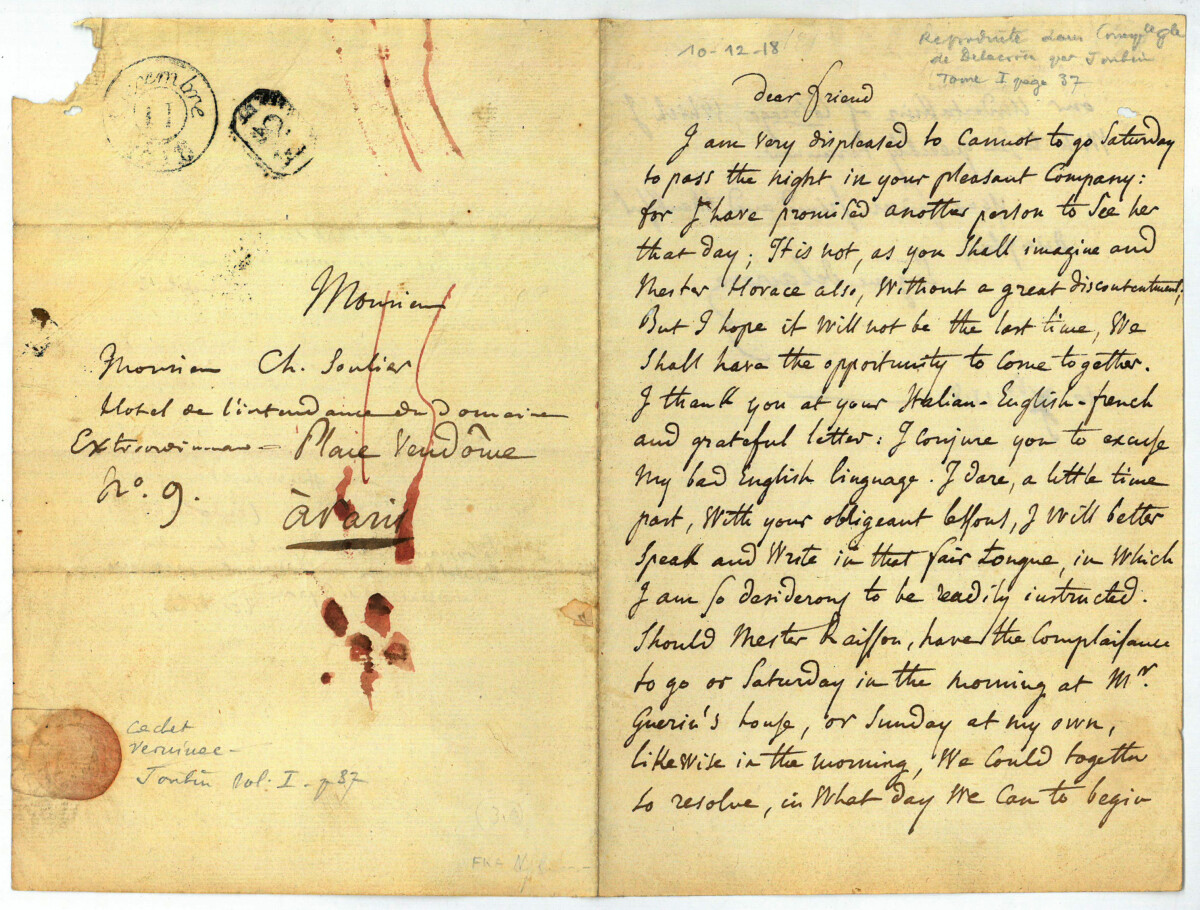 cembre
11
Monsieur
Monsieur Ch. Soulier
Hotel de l'intendance du Domaine
Extraordinaire = Place Vendôme
No. 9.
à Paris
cachet
Verninac -
Joubin Vol: I - p 37
10-12-18
Reproduite dans
de Delacroix par Joubin
Tome I page 37
dear friend
I am very displeased to cannot to go Saturday
to pass the night in your pleasant Company:
for I have promised another person to See her
that day; It is not, as you Shall imagine and
Mester Horace also, Without a great discontentment;
But I hope it Will not be the last time, We
Shall have the opportunity to Come together.
I thank you at your Italian-English-french
and grateful letter: I conjure you to excuse
My bad English linguage. I dare, a little time
past, With your obligeant lessons, I Will better
Speak and Write in that fair tongue, in Which
I am so desiderous to be readily instructed.
Should Mester Raisson, have the Complaisance
to go or Saturday in the morning at Mr.
Guerin's house, or Sunday at my own,
likeWise in the morning, We Could together
to resolve, in What day We Can to begin